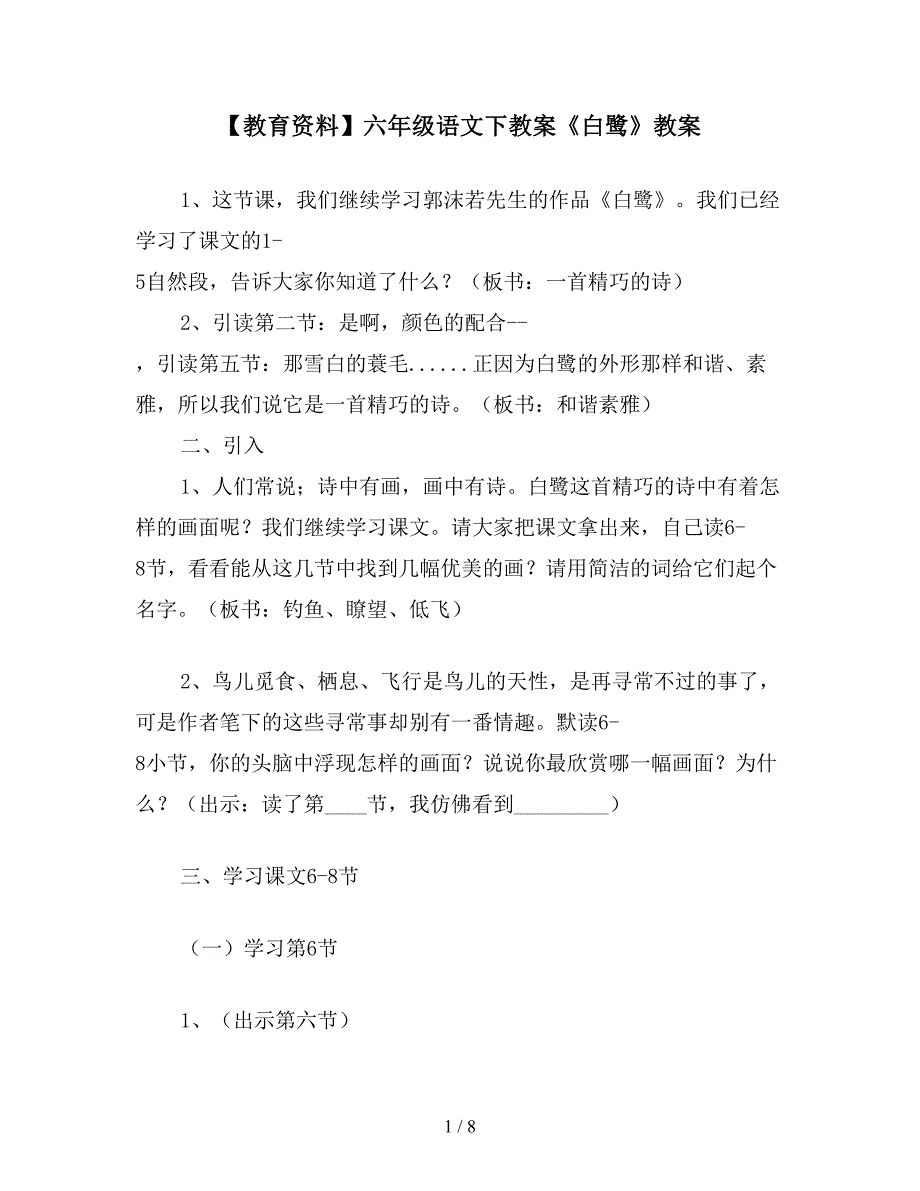 【教育资料】六年级语文下教案《白鹭》教案
1、这节课，我们继续学习郭沫若先生的作品《白鹭》。我们已经
学习了课文的1-
5自然段，告诉大家你知道了什么？（板书：一首精巧的诗）
2、引读第二节：是啊，颜色的配合--
，引读第五节：那雪白的蓑毛......正因为白鹭的外形那样和谐、素
雅，所以我们说它是一首精巧的诗。（板书：和谐素雅）
二、引入
1、人们常说；诗中有画，画中有诗。白鹭这首精巧的诗中有着怎
样的画面呢？我们继续学习课文。请大家把课文拿出来，自己读6-
8节，看看能从这几节中找到几幅优美的画？请用简洁的词给它们起个
名字。（板书：钓鱼、瞭望、低飞）
2、鸟儿觅食、栖息、飞行是鸟儿的天性，是再寻常不过的事了，
可是作者笔下的这些寻常事却别有一番情趣。默读6-
8小节，你的头脑中浮现怎样的画面？说说你最欣赏哪一幅画面？为什
么？（出示：读了第____节，我仿佛看到_________）
三、学习课文6-8节
（一）学习第6节
1、（出示第六节）
1 / 8